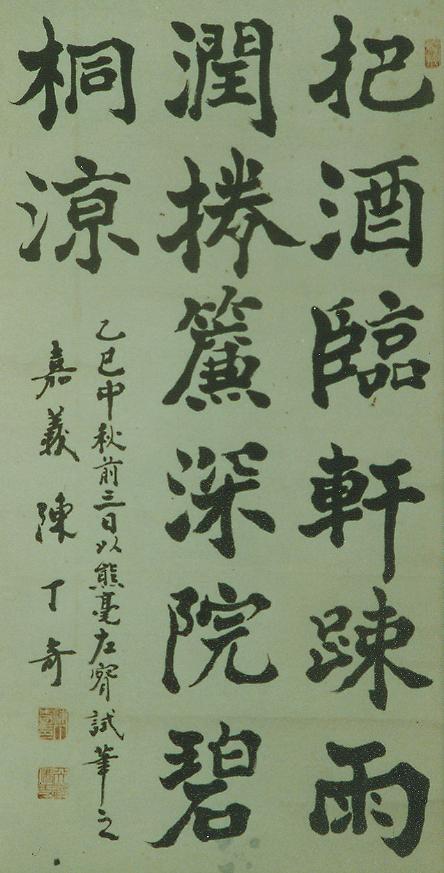 把酒臨軒踈雨
潤捲簾深院碧
桐涼
乙巳中秋前三日以熊毫左試筆之
嘉義陳丁奇